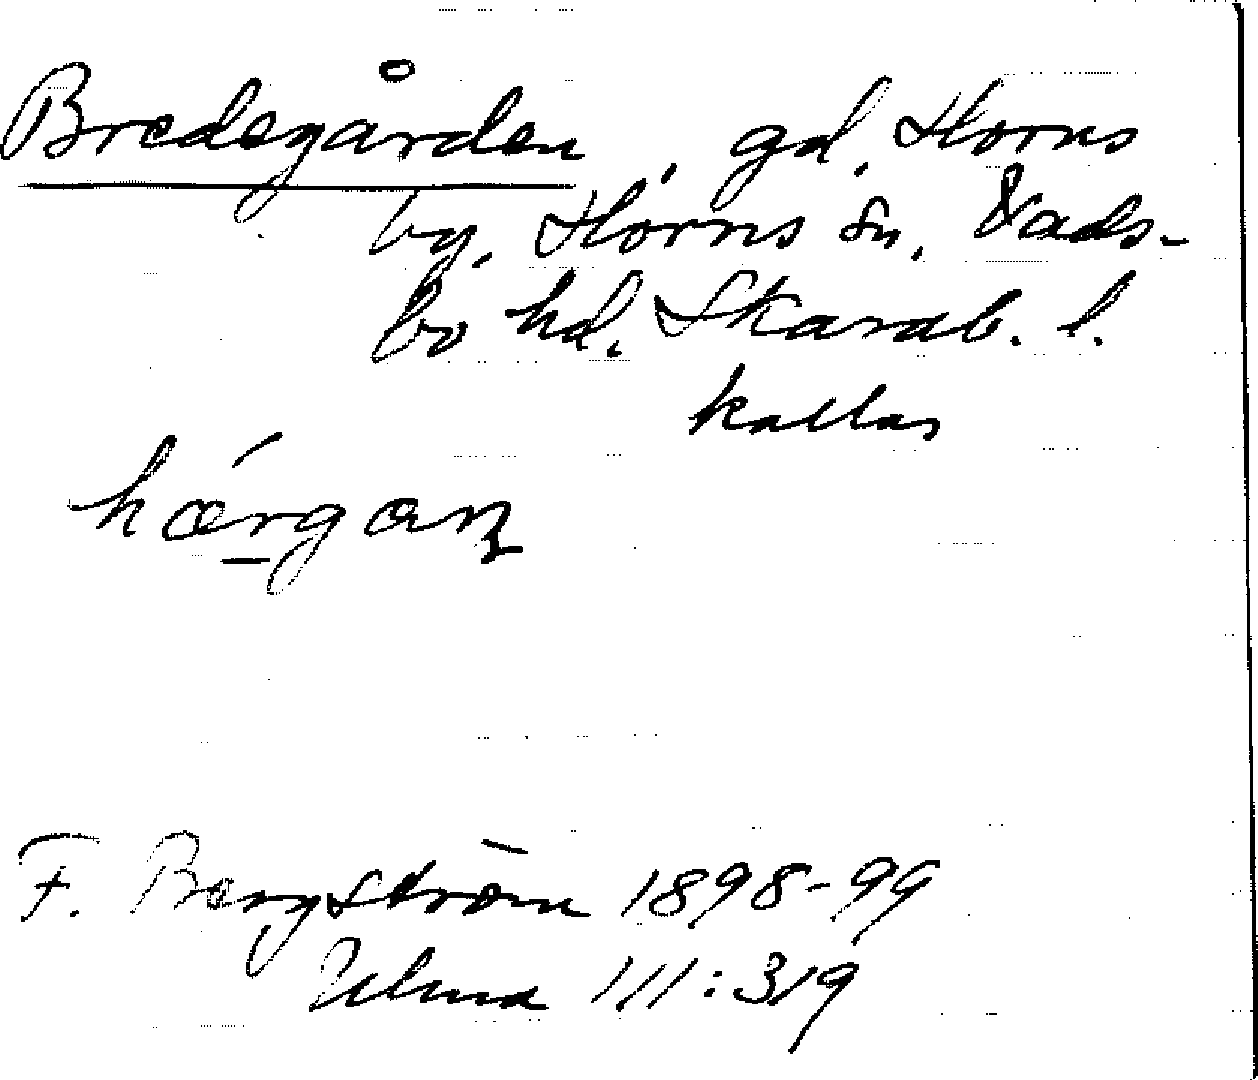 Bredegården, gd, Horns
by, Horns sn, Vads-
bo hd, Skarab. l.
kallas
hærgan
F. Bergström 1898-99
Ulma 111:319